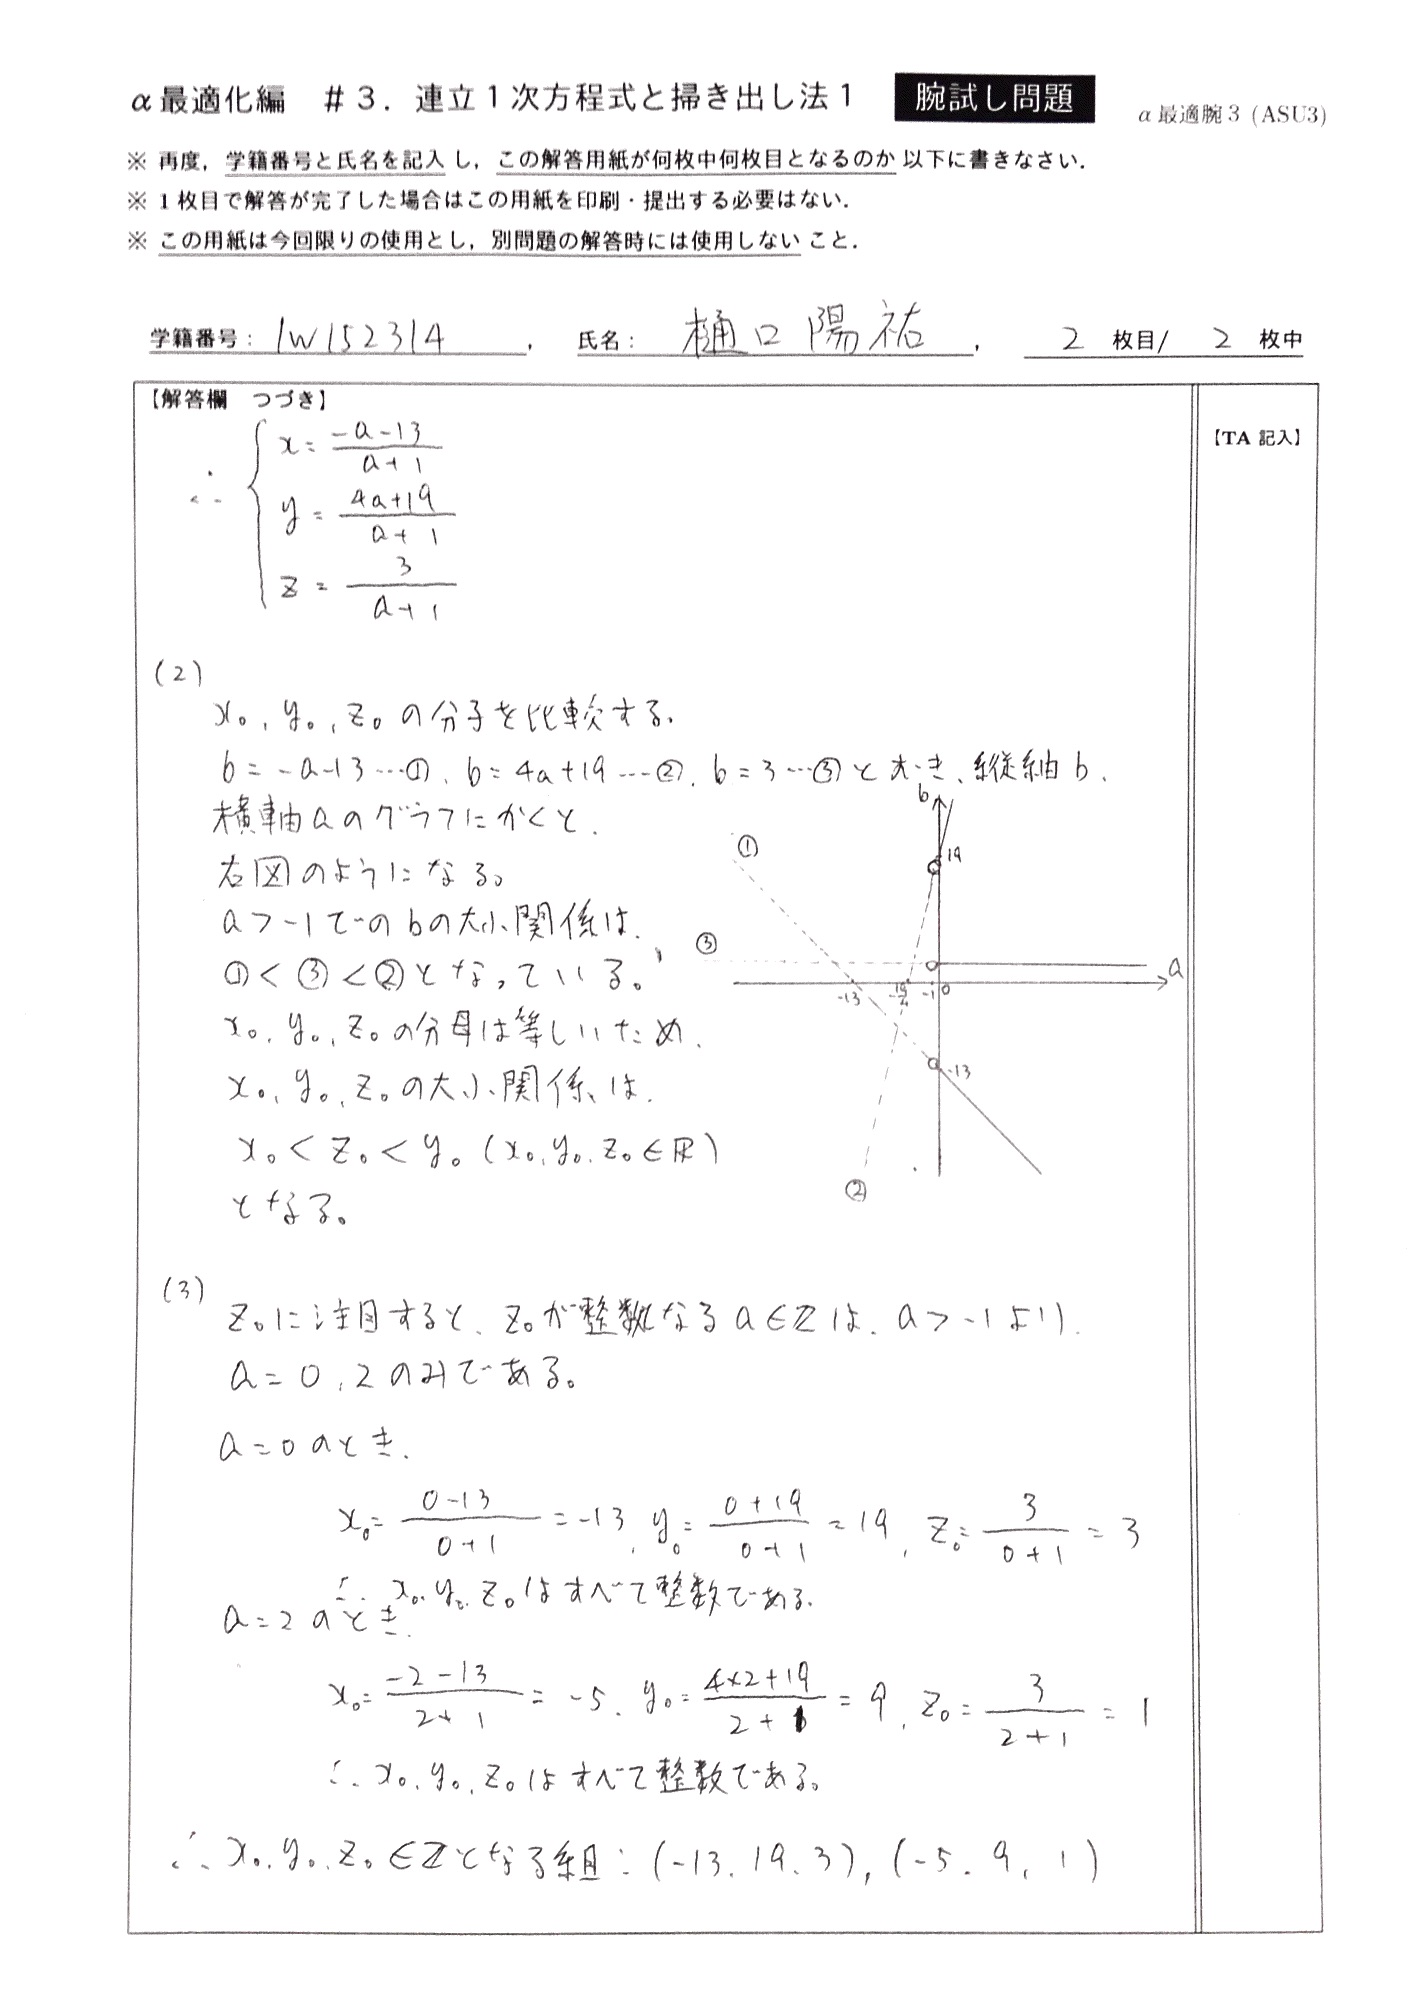 α最適化編 #3. 連立1次方程式と掃き出し法1 腕試し問題 α最適腕3 (ASU3)
※ 再度, 学籍番号と氏名を記入し, この解答用紙が何枚中何枚目となるのか以下に書きなさい.
※ 1枚目で解答が完了した場合はこの用紙を印刷・提出する必要はない.
※ この用紙は今回限りの使用とし, 別問題の解答時には使用しないこと.
学籍番号: 1W152314, 氏名: 樋口陽祐, 2 枚目/ 2 枚中
【解答欄 つづき】
【TA 記入】
∴ { x = (-a-13)/(a+1)
y = (4a+19)/(a+1)
z = 3/(a+1)
(2)
x₀, y₀, z₀の分子を比較する.
b = -a-13 …①, b = 4a+19 …②, b = 3 …③とおき、縦軸b,
横軸aのグラフにかくと,
右図のようになる。
a > -1でのbの大小関係は,
①<③<②となっている。
x₀, y₀, z₀の分母は等しいため,
x₀, y₀, z₀の大小関係は,
x₀ < z₀ < y₀ (x₀, y₀, z₀ ∈ ℝ)
となる。
b
① 19
③ a
-13 -19/4 -1 0
-13
②
(3)
z₀に注目すると、z₀が整数なるa∈ℤは, a > -1より,
a = 0, 2のみである。
a = 0のとき,
x₀ = (0-13)/(0+1) = -13, y₀ = (0+19)/(0+1) = 19, z₀ = 3/(0+1) = 3
∴ x₀, y₀, z₀はすべて整数である.
a = 2のとき,
x₀ = (-2-13)/(2+1) = -5, y₀ = (4×2+19)/(2+1) = 9, z₀ = 3/(2+1) = 1
∴ x₀, y₀, z₀はすべて整数である。
∴ x₀, y₀, z₀ ∈ ℤとなる組: (-13, 19, 3), (-5, 9, 1)